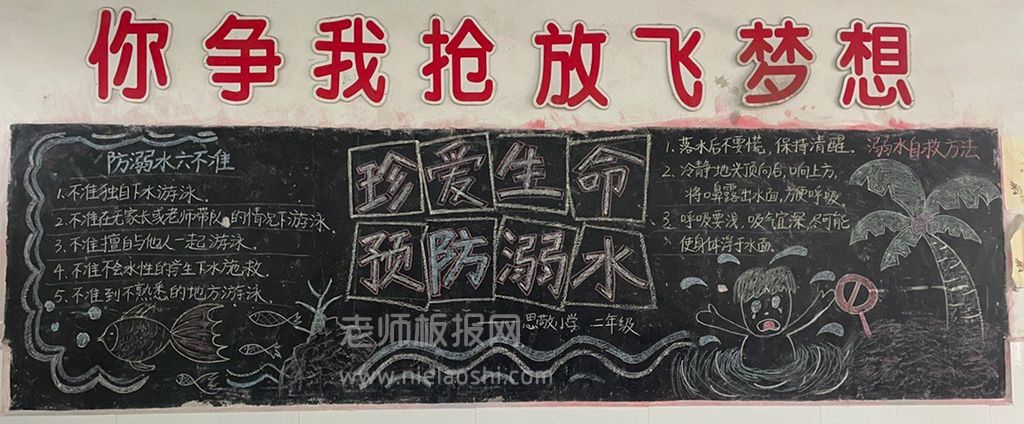 你争我抢放飞梦想
防溺水六不准
1.不准独自下水游泳.
2.不准在无家长或老师带队的情况下游泳
3.不准擅自与他人一起游泳.
4.不准不会水性的学生下水施救.
5.不准到不熟悉的地方游泳.
珍爱生命
预防溺水
思敬小学 二年级
溺水自救方法
1.落水后不要慌,保持清醒.
2.冷静地头顶向后,口向上方,
将口鼻露出水面,方便呼吸.
3.呼吸要浅,吸气宜深,尽可能
使身体浮于水面.
老师板报网
www.nielaoshi.com